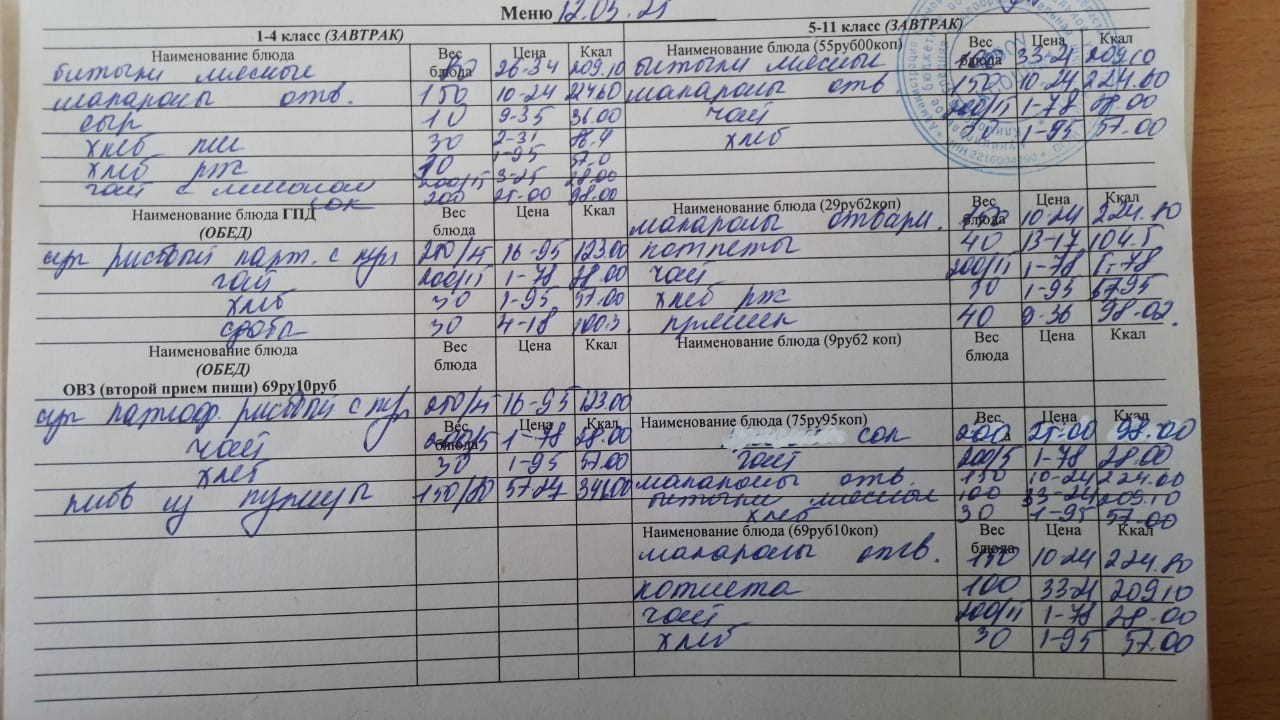 Меню 12.05.25
1-4 класс (ЗАВТРАК)
Наименование блюда Вес блюда Цена Ккал
битычки мясные 80 26-34 209.10
макароны отв. 150 10-24 224.60
сыр 10 9-35 36.00
хлеб пш 30 2-31
хлеб рж 30 1-95 57.0
чай с лимоном 200/15 3-25 28.00
сок 200 25-00 98.00
Наименование блюда ГПД (ОБЕД) Вес блюда Цена Ккал
суп рисовый карт. с кур 250/25 16-95 123.00
чай 200/15 1-78 28.00
хлеб 30 1-95 57.00
сдоба 30 4-18 100.3
Наименование блюда (ОБЕД) Вес блюда Цена Ккал
ОВЗ (второй прием пищи) 69ру10руб
суп картоф. рисовый с кур 250/25 16-95 123.00
Вес блюда Цена Ккал
чай 200/15 1-78 28.00
хлеб 30 1-95 57.00
плов из курицы 150/80 57-27 341.00
5-11 класс (ЗАВТРАК)
Наименование блюда (55руб00коп) Вес блюда Цена Ккал
битычки мясные 100 33-21 209.10
макароны отв 150 10-24 224.60
чай 200/15 1-78 28.00
хлеб 30 1-95 57.00
Наименование блюда (29руб2коп) Вес блюда Цена Ккал
макароны отварн. 150 10-24 224.80
котлеты 40 13-17 104.5
чай 200/15 1-78
хлеб рж 30 1-95
пряник 40 98.02.
Наименование блюда (9руб2 коп) Вес блюда Цена Ккал
Наименование блюда (75ру95коп) Вес блюда Цена Ккал
сок 200 25-00 98.00
чай 200/15 1-78 28.00
макароны отв. 150 10-24 224.00
битычки мясные 100 33-21 209.10
хлеб 30 1-95 57.00
Наименование блюда (69руб10коп) Вес блюда Цена Ккал
макароны отв. 150 10-24 224.80
котлета 100 33-21 209.10
чай 200/15 1-78 28.00
хлеб 30 1-95 57.00